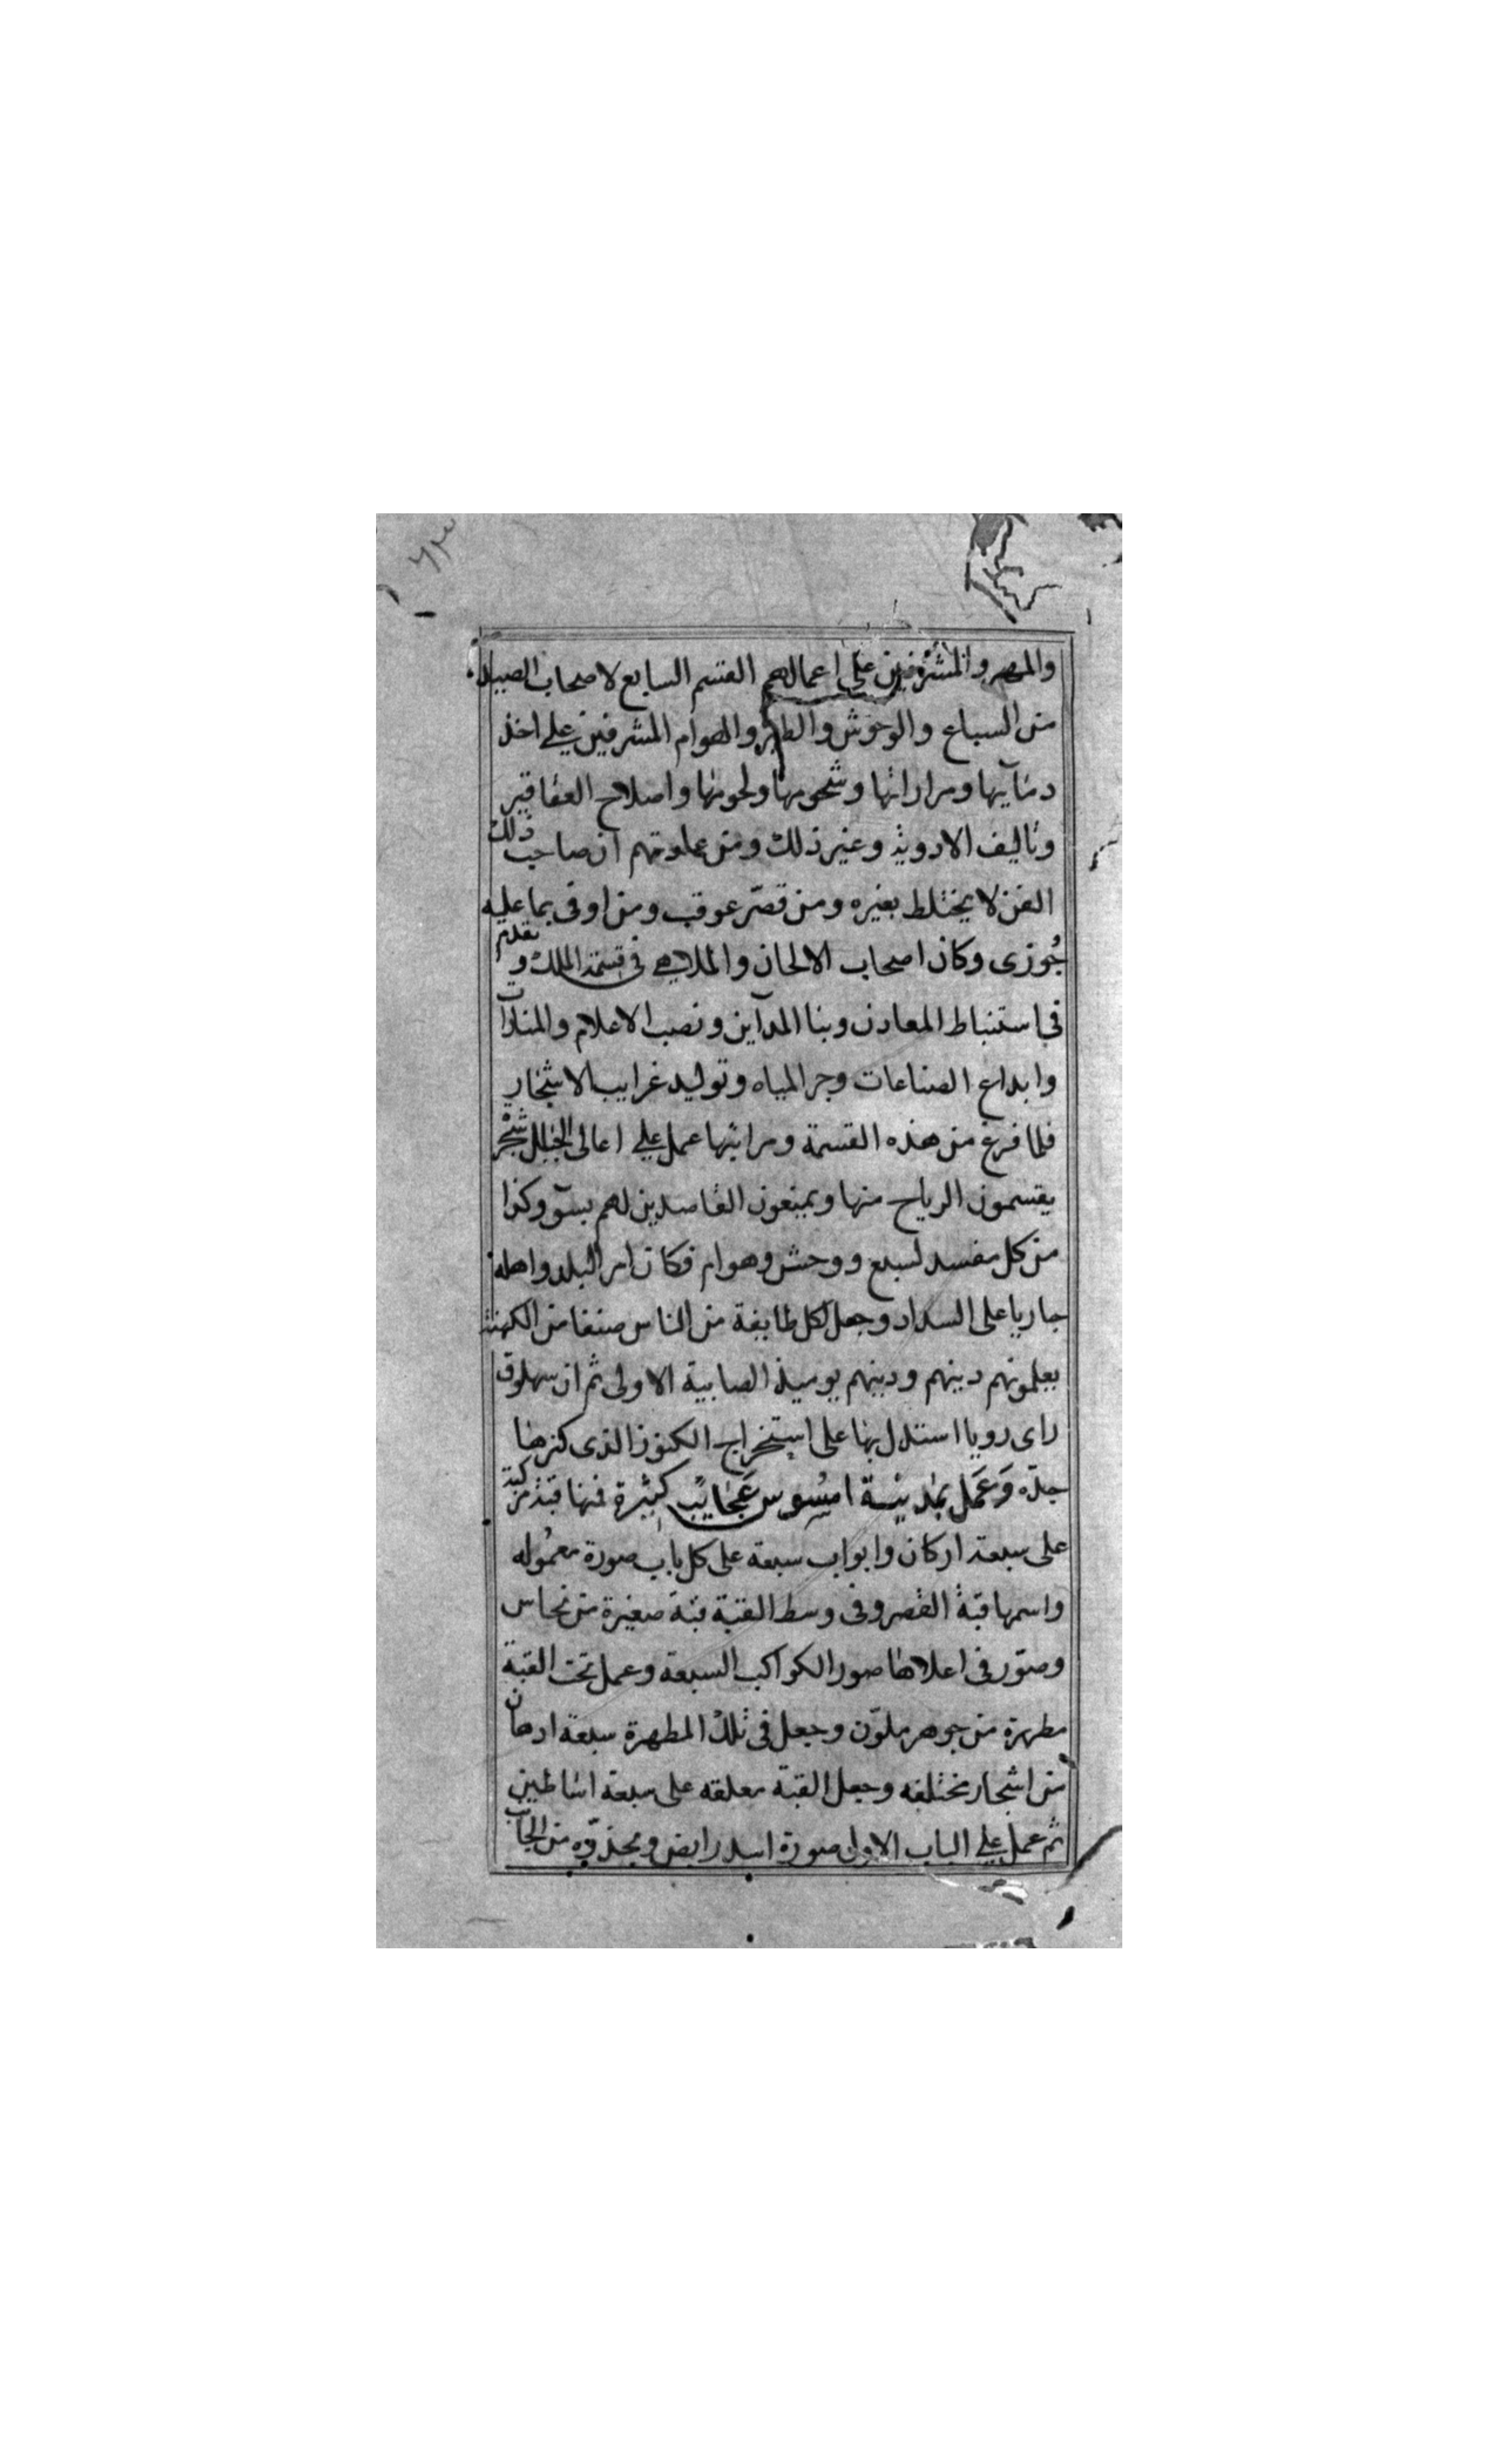 ٦٣
والمهر والمشرفين على اعمالهم القسم السابع لاصحاب الصيد
من السباع والوحوش والطير والهوام المشرفين علي اخذ
دمآيها ومراراتها وشحومها ولحومها واصلاح العقاقير
وتاليف الادوية وغير ذلك ومن علومهم ان صاحب ذلك
الفن لا يختلط بغيره ومن قصّر عوقب ومن اوفى بما عليه
جُوزى وكان اصحاب الالحان والملاهي فى قسمة الملك وتقدم
في استنباط المعادن وبنا المدآين ونصب الاعلام والمنارات
وابداع الصناعات وجر المياه وتوليد غرايب الاشجار
فلما فرغ من هذه القسمة ومراتبها عمل علي اعالى الجبال شجر
يقسمون الرياح منها ويمنعون القاصدين لهم بسوٓ وكذا
من كل مفسد لسبع ووحش وهوام فكان امر البلد واهله
جاريا على السداد وجعل لكل طايفة من الناس صنفا من الكهنة
يعلمونهم دينهم ودينهم يوميذ الصابية الاولى ثم ان سهلوق
راى رويا استدل بها على استخراج الكنوز الذى كنزها
جدّه وَعَمَل بمدينة امسُوس عَجَايبً كثيرة فمنها قبة مركبة
على سبعة اركان وابواب سبعة على كل باب صورة معموُله
واسمها قبة القصر وفى وسط القبة قبة صغيرة من نحاس
وصوّر فى اعلاها صور الكواكب السبعة وعمل تحت القبة
مطهرة من جوهر ملوّن وجعل فى تلك المطهرة سبعة ادهان
من اشجار مختلفه وجعل القبة معلقه على سبعة اساطين
ثم عمل علي الباب الاول صورة اسد رابض ومن الجانب